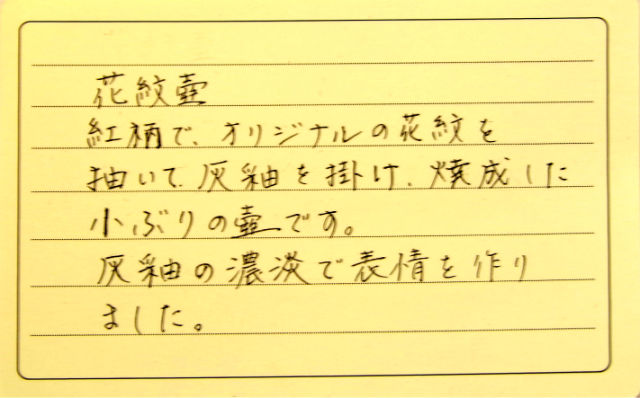 花紋壷
紅柄で、オリジナルの花紋を
抽いて、灰釉を掛け、焼成した
小ぶりの壷です。
灰釉の濃淡で表情を作り
ました。